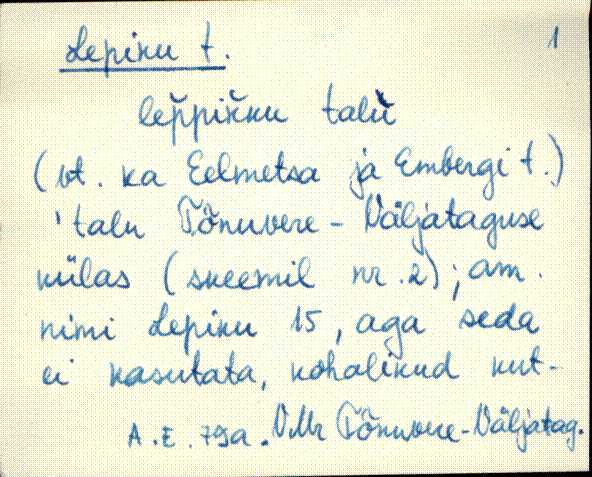 Lepiku t. 1
lep̆pik̆ku talu̇̀
(vt. ka Eelmetsa ja Embergi t.)
'talu Tõnuvere-Väljataguse
külas (skeemil nr. 2); am.
nimi Lepiku 15, aga seda
ei kasutata, kohalikud kut-
A.E. 79a. VMr Tõnuvere-Väljatag.